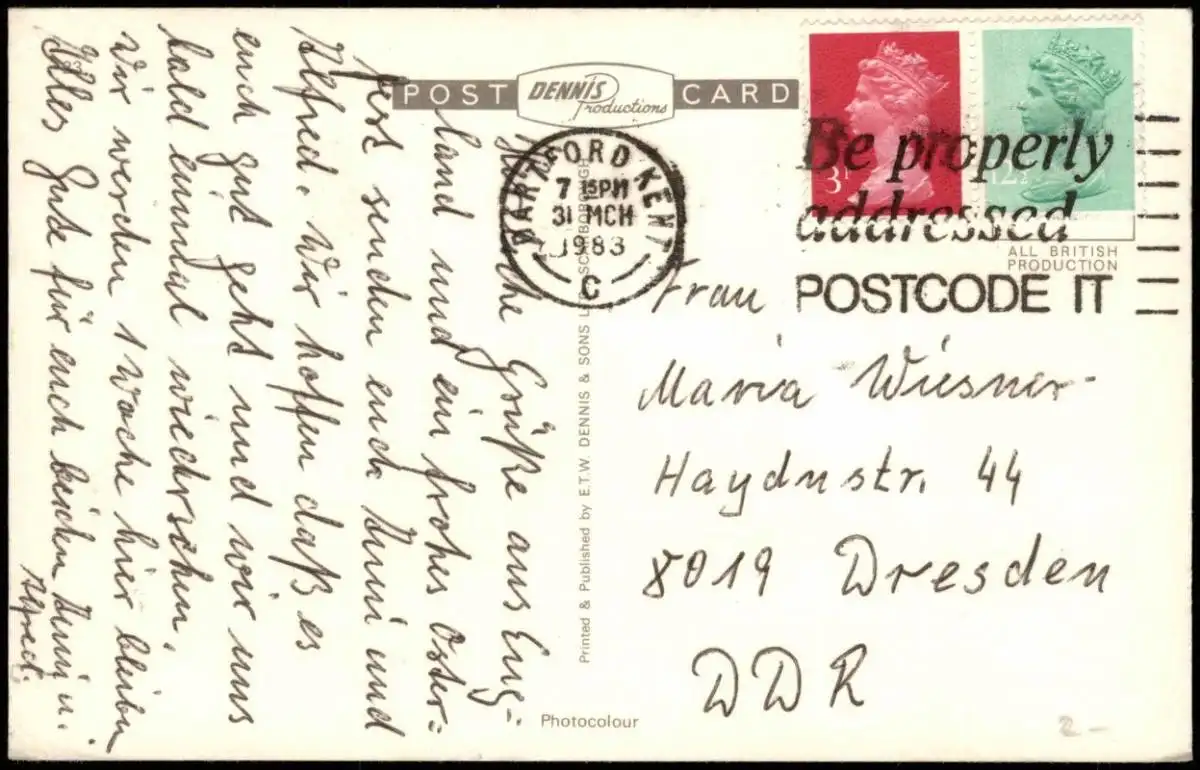 POST DENNIS Productions CARD
Herzliche Grüße aus Eng-
land und ein frohes Oster=
fest senden euch Anni und
Alfred. Wir hoffen daß es
euch gut geht und wir uns
bald einmal wiedersehen.
Wir werden 1 Woche hier bleiben
Alles Gute für euch beiden Anni u.
Alfred.
DARTFORD KENT
7 15PM
31 MCH
1983
C
Printed & Published by E.T.W. DENNIS & SONS LTD SCARBOROUGH
Photocolour
3P
12½
Be properly
addressed
POSTCODE IT
ALL BRITISH
PRODUCTION
Frau
Maria Wiesner
Haydnstr. 44
8019 Dresden
DDR
2-